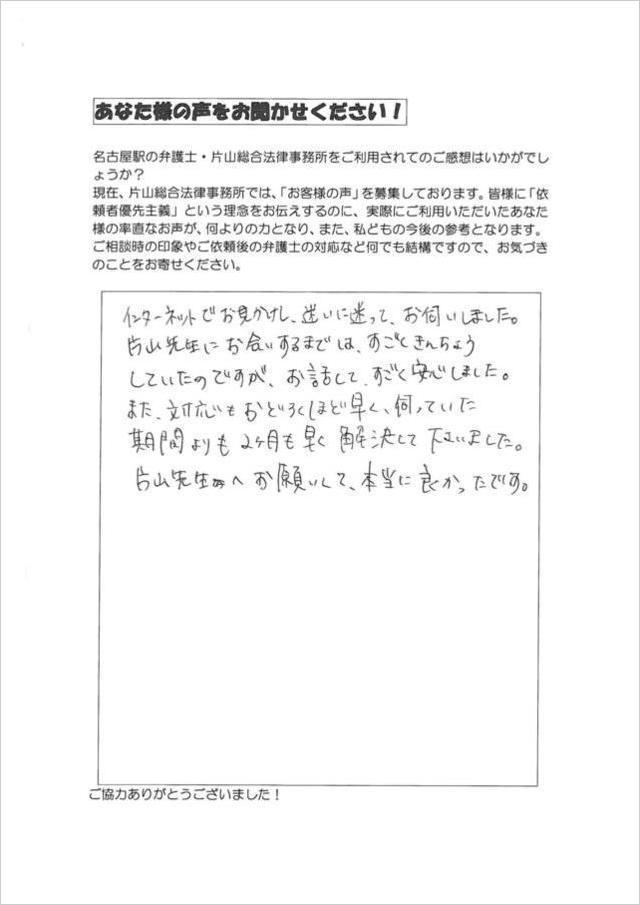 あなた様の声をお聞かせください！
名古屋駅の弁護士・片山総合法律事務所をご利用されてのご感想はいかがでし
ょうか？
現在、片山総合法律事務所では、「お客様の声」を募集しております。皆様に「依
頼者優先主義」という理念をお伝えするのに、実際にご利用いただいたあなた
様の率直なお声が、何よりの力となり、また、私どもの今後の参考となります。
ご相談時の印象やご依頼後の弁護士の対応など何でも結構ですので、お気づき
のことをお寄せください。
インターネットでお見かけし、迷いに迷って、お伺いしました。
片山先生にお会いするまでは、すごくきんちょう
していたのですが、お話して、すごく安心しました。
また、対応もおどろくほど早く、伺っていた
期間よりも2ヶ月も早く解決して下さいました。
片山先生へお願いして、本当に良かったです。
ご協力ありがとうございました！